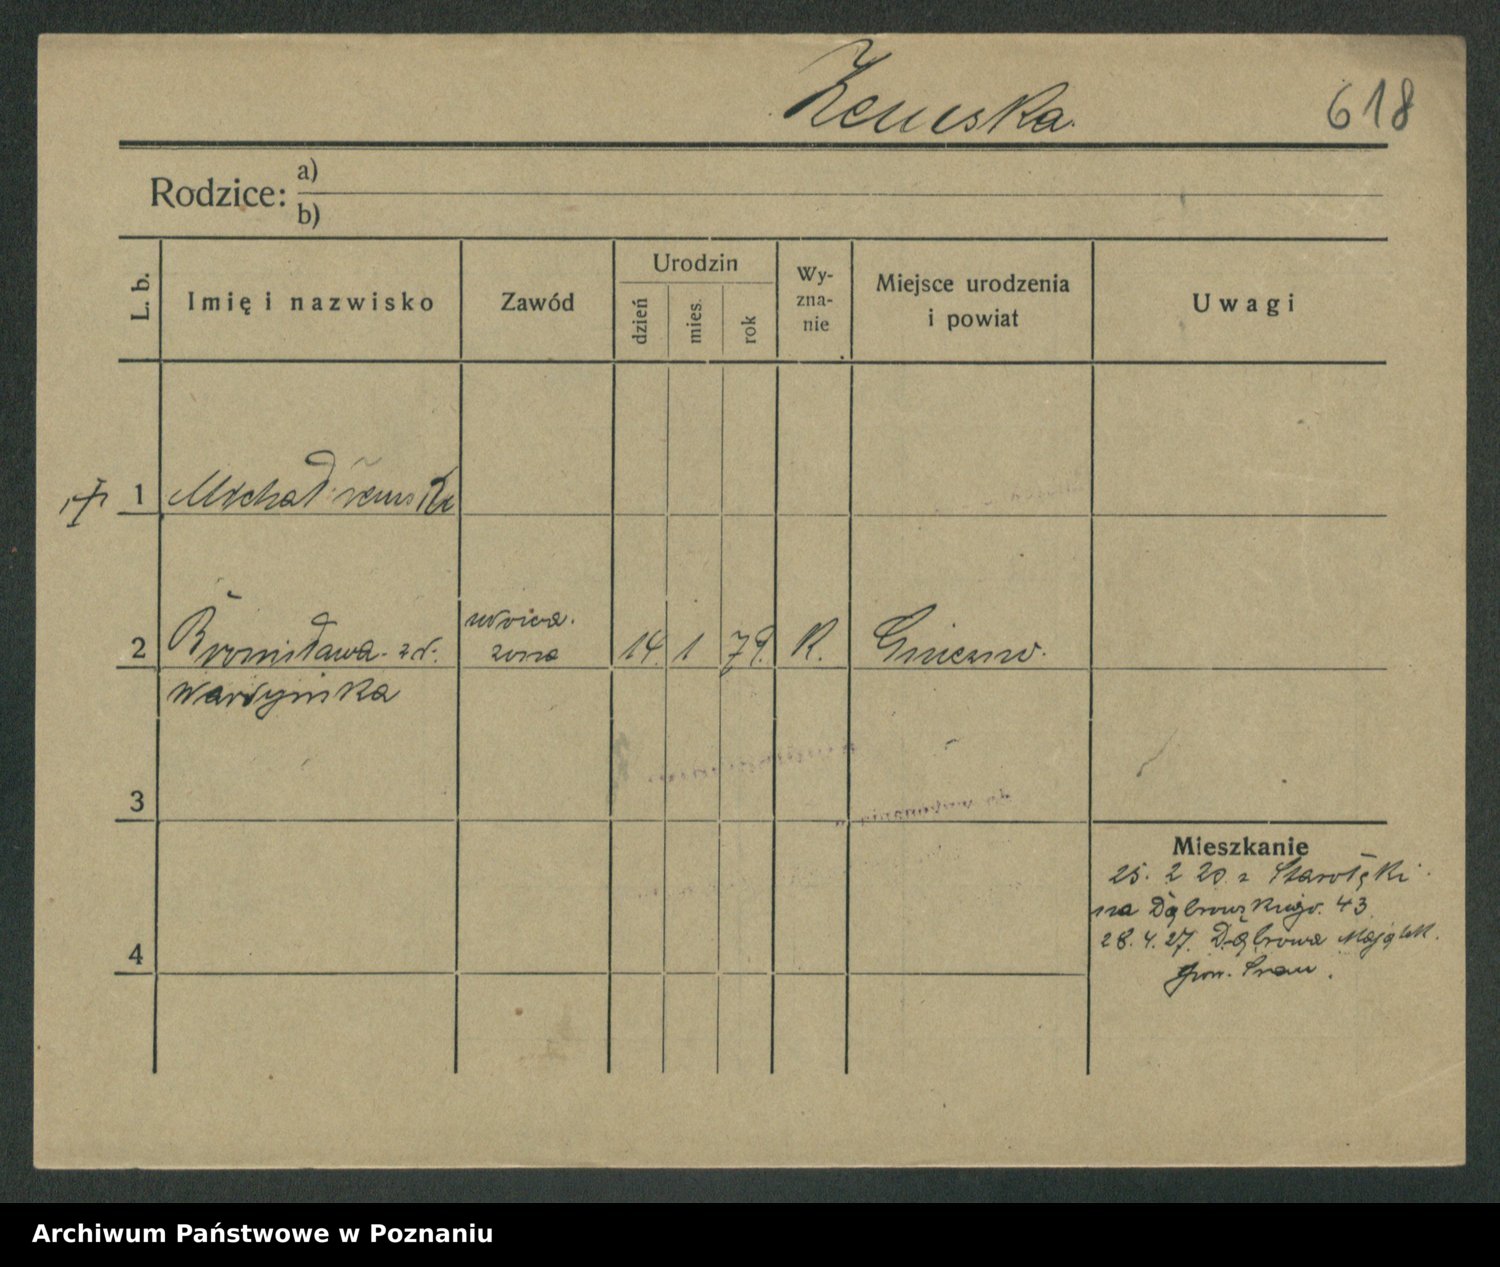 Żemska
618
Rodzice: a)
b)
L. b.
Imię i nazwisko
Zawód
Urodzin
dzień
mies.
rok
Wy-
zna-
nie
Miejsce urodzenia
i powiat
Uwagi
1 Michał Żemski
2 Bronisława
14. 1 79. R. Gniezno.
3
Mieszkanie
25. 2 20. z Starołęki
na Dąbrowskiego. 43
28. 4. 27. Dąbrowa Majątek.
4
pow. Śrem.
Archiwum Państwowe w Poznaniu